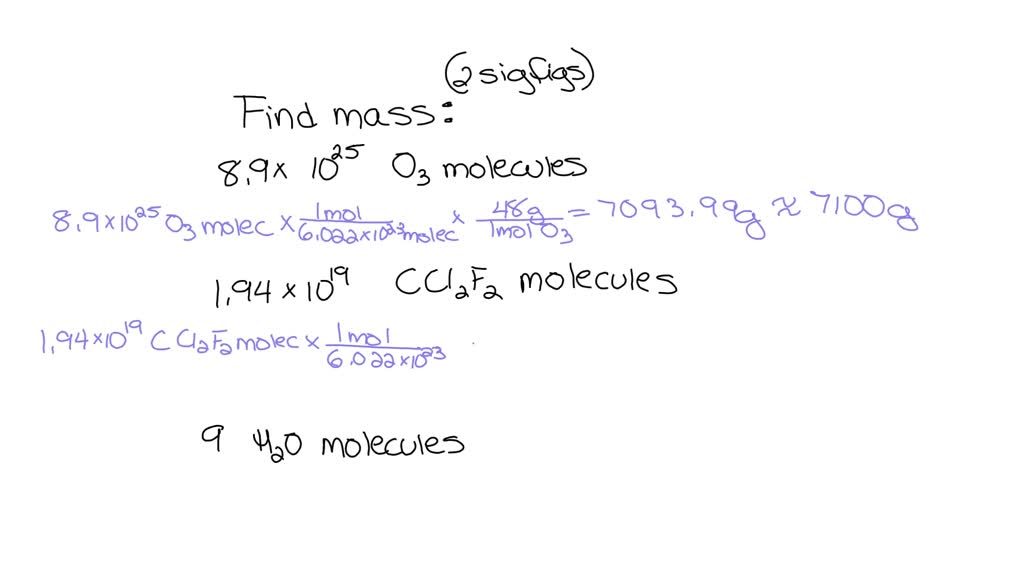 (2 sigfigs)
Find mass:
8.9 × 10²⁵ O₃ molecules
8.9×10²⁵ O₃ molec × 1mol / 6.022×10²³ molec × 48g / 1mol O₃ = 7093.99g ≈ 7100g
1.94 × 10¹⁹ CCl₂F₂ molecules
1.94×10¹⁹ CCl₂F₂ molec × 1mol / 6.022×10²³
9 H₂O molecules